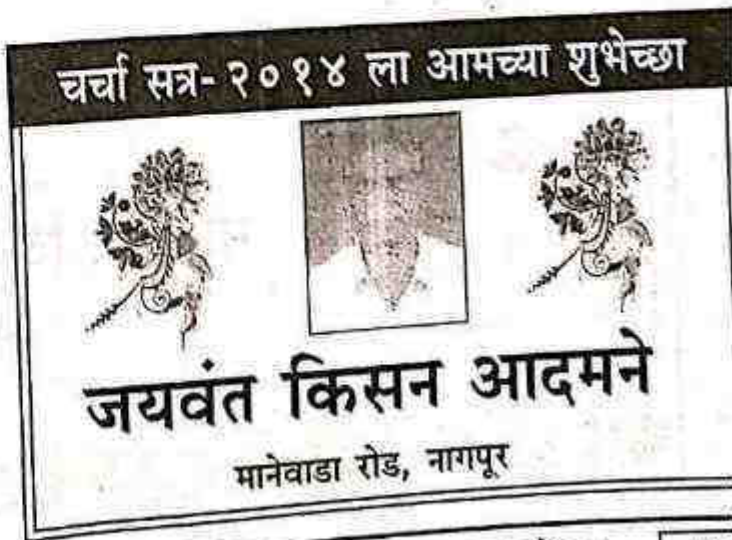 चर्चा सत्र-२०१४ ला आमच्या शुभेच्छा
जयवंत किसन आदमने
मानेवाडा रोड, नागपूर